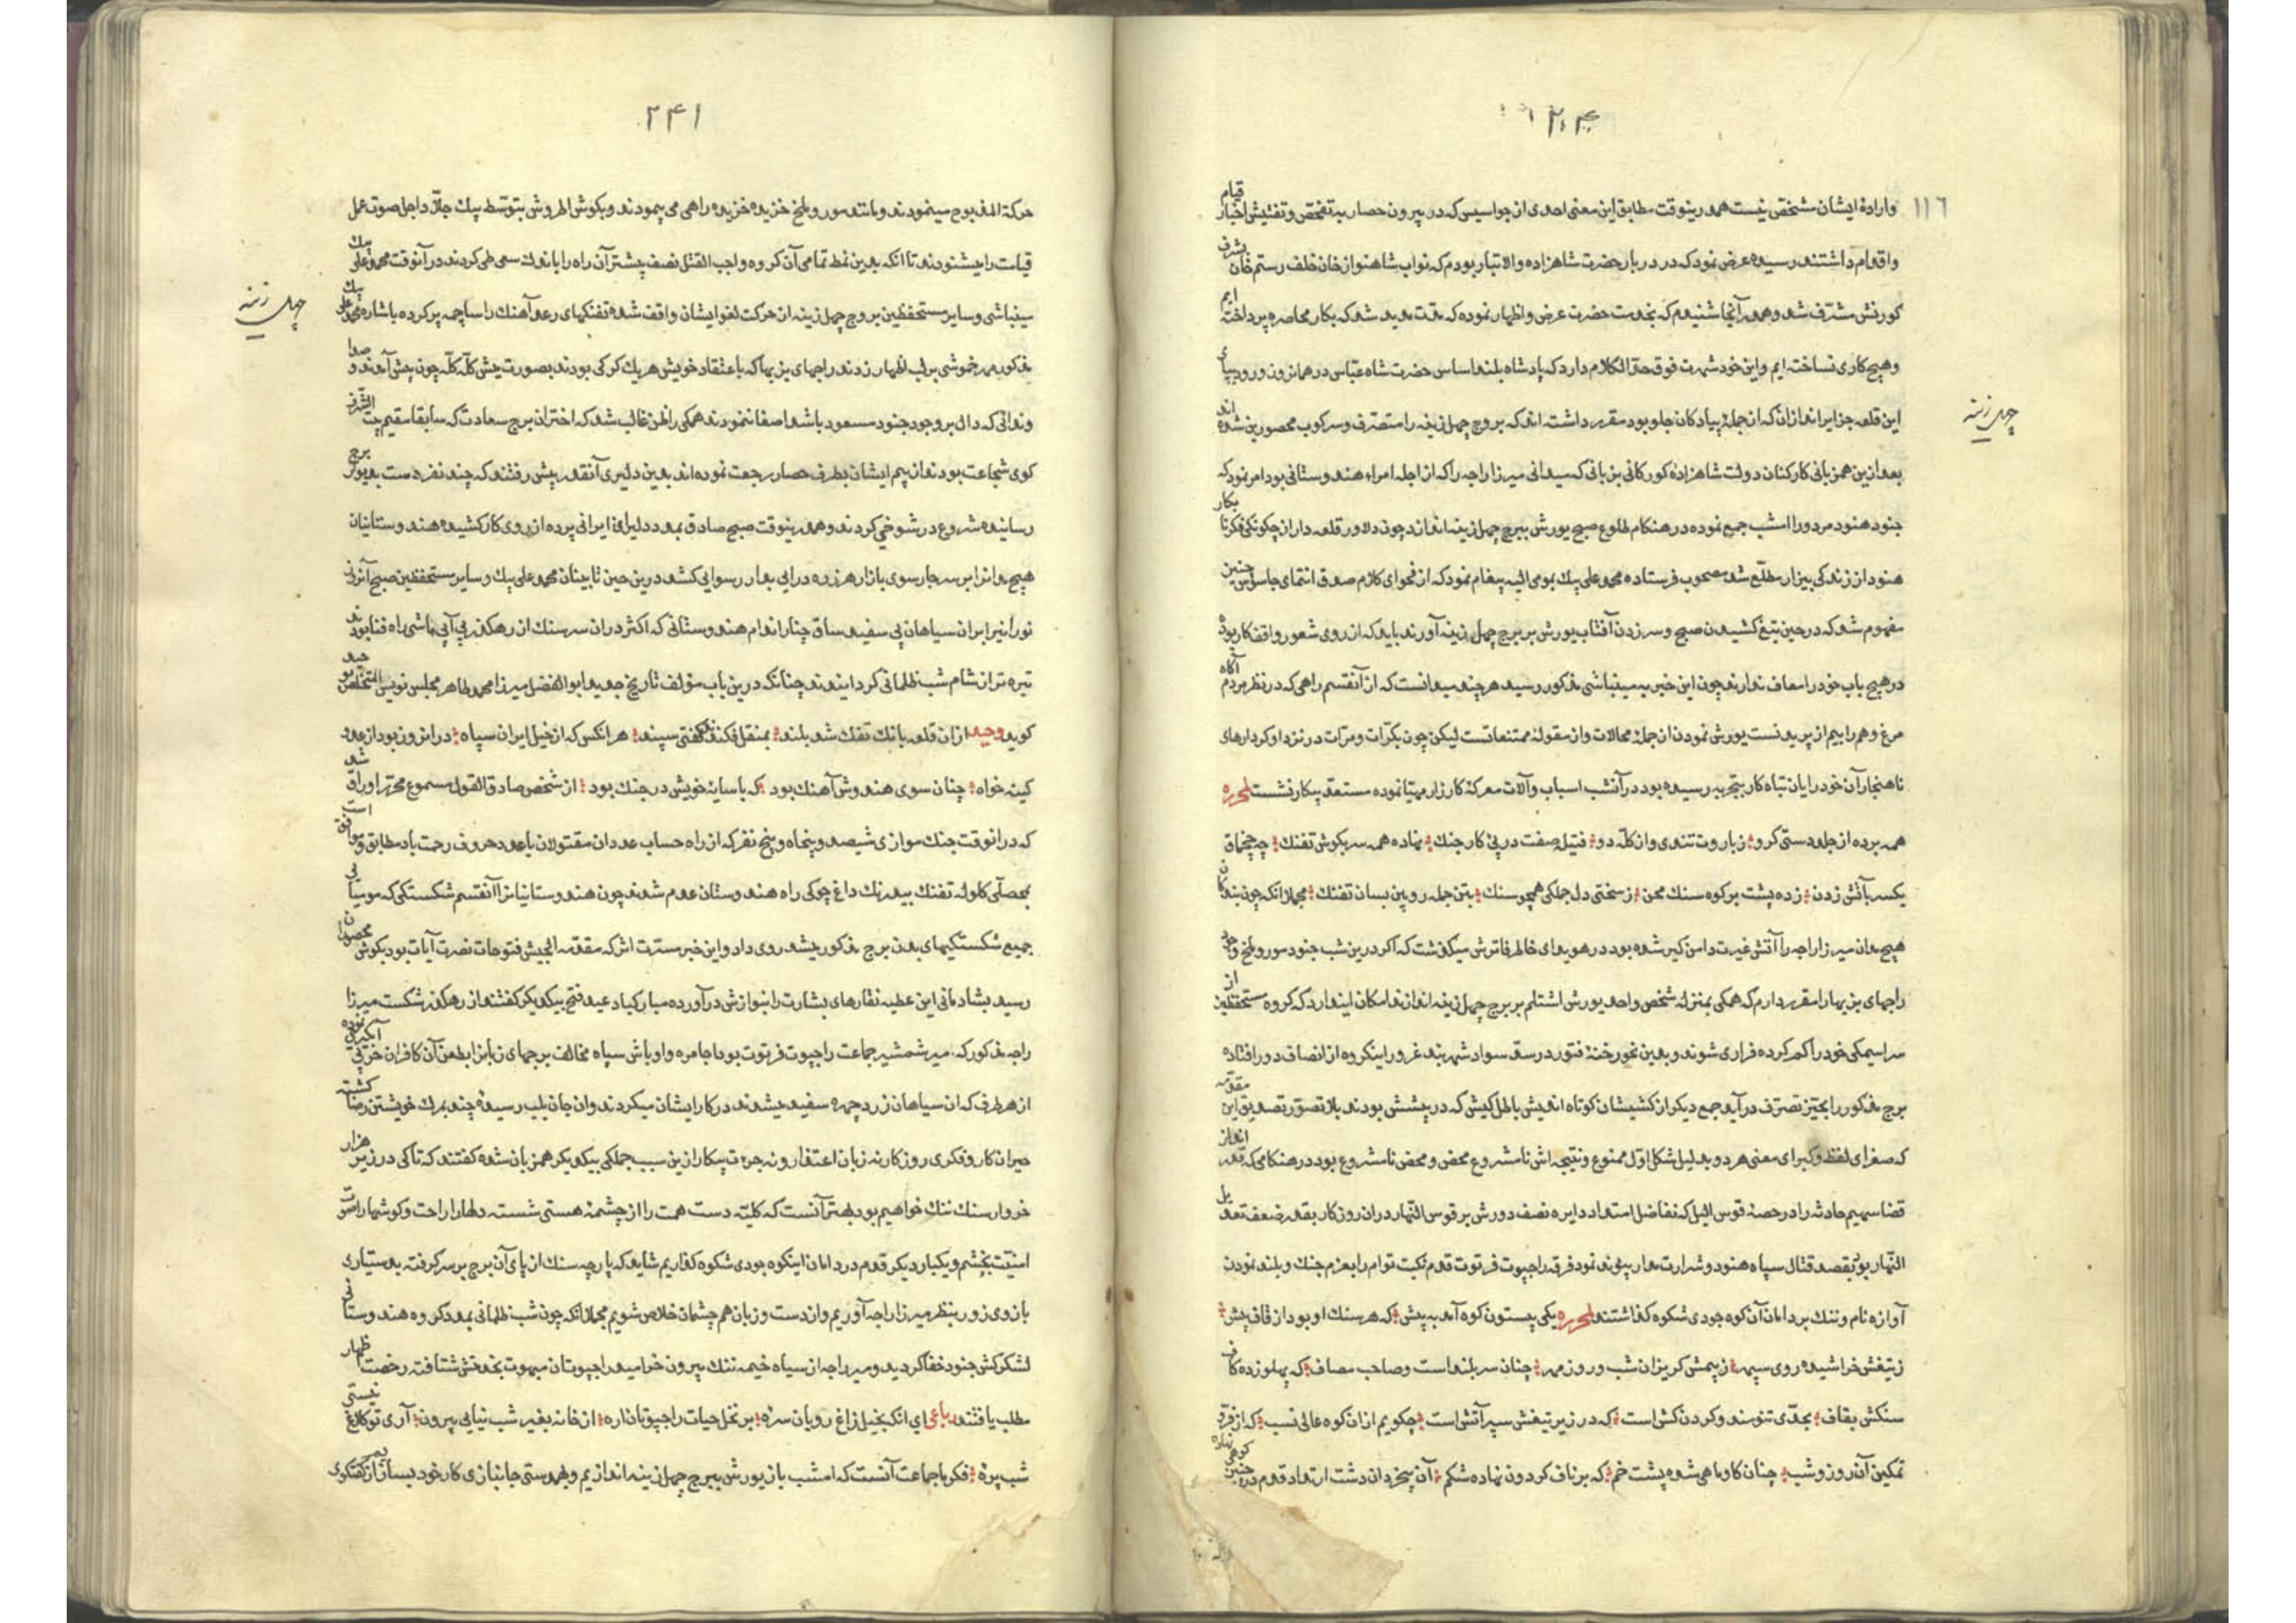 ۱۱۶
وارادهٔ ایشان مشخص نیست همدرینوقت مطابق این معنی احدی از جواسیس که در بیرون حصار به تفحص و تفتیش اخبار قیام
و اقدام داشتند رسیده عرض نمود که در دربار حضرت شاهزاده والاتبار بودم که نواب شاهنواز خان خلف رستم خان بشرف
کورنش مشرف شد و همدر آنجا شنیدم که بخدمت حضرت عرض و اظهار نموده که مدت مدید شد که بکار محاصره پرداخته ایم
و هیچ کاری نساخته ایم و این خود شهرت فوق حد الکلام دارد که پادشاه بلند اساس حضرت شاه عباس در همانروز ورود بپای
این قلعه جزایراندازان که از جملهٔ پیادکان جلو بود مقرر داشته اند که بروج چهل زینه را متصرف و سرکوب محصورین شده اند
بعد ازین همزبانی کارکنان دولت شاهزاده کورکانی بزبانی که میدانی میرزا راجه را که از اجله امراء هندوستانی بود امر نمود که
جنود هنود مردود را امشب جمع نموده در هنکام طلوع صبح یورش ببرج چهل زینه اندازد چون دلاور قلعه دار از چکونکی فکر نابکار
هنود از زندکی بیزار مطلع شد مصحوب فرستاده محمد علی بیك بمومی الیه پیغام نمود که از فحوای کلام صدق انتمای جاسوس چنین
مفهوم شد که در حین تیغ کشیدن صبح و سر زدن آفتاب یورش بر برج چهل زینه آورند باید که از روی شعور واقف کار بوده
در هیچ باب خود را معاف ندارند چون این خبر به مینباشی مذکور رسید هرچند میدانست که از آنقسم راهی که در نظر مردم آکاه
مرغ وهم را بیم از پریدنست یورش نمودن از جملهٔ محالات و از مقولهٔ ممتنعاتست لیکن چون بکرات و مرات در نزد او کردارهای
ناهنجار آن خودرایان تباه کار بتجربه رسیده بود در آنشب اسباب و آلات معرکهٔ کارزار مهیا نموده مستعد پیکار نشست لمحرره
همه برده از جلد دستی کرو زباروت تندی و از کله دو فتیله صفت در پی کار جنك نهاده همه سر بکوش تفنك چه چخماق
یکسر بآتش زدن زده پشت بر کوه سنك محن ز سختی دل جملکی همچو سنك بتن جمله رویین بسان تفنك مجملا انکه چون بندکان
هیچمدان میرزا راجه را آتش غیرت دامن کیر شده بود در هویدای خاطر فاترش میکذشت که اکر درین شب جنود مور و ملخ وجود
راجهای بزبها را مقرر دارم که همکی بمنزله شخص واحد یورش اشتلم بر برج چهل زینه اندازند امکان اینداردکه کروه مستحفظین از
سراسیمکی خود را کم کرده فراری شوند و بدین نحور خنهٔ فتور در سد سواد شهربند غرور اینکروه از انصاف دور افتاده
برج مذکور را بحیز تصرف در آید جمع دیکر از کشیشان کوتاه اندیش باطل کیش که در پیشش بودند بلاتصور تصدیق این مقدمه
که صغرای لفظ و کبرای معنی هر دو بدلیل شکل اول ممنوع و نتیجه اش نامشروع محض و محض نامشروع بود در هنکامی که قدر انداز
قضا سهیم حادثه را در حصهٔ قوس اللیل که تفاضل امتداد دایره نصف دورش بر قوس النهار در ان روزکار بقدر ضعف تعدیل
النهار بود بقصد قتال سپاه هنود و شرارت مدار پیوند نمود فرقه راجپوت فرتوت قدم نکبت توام را بعزم جنك و بلند نمودن
آوازه نام و ننك بر دامان آن کوه جودی شکوه کذاشتند لمحرره یکی بیستون کوه آمد به پیش که هر سنك او بود از قاف بیش
ز تیغش خراشیده روی سپهر ز بیمش کریزان شب و روز مهر چنان سربلند است و صاحب مصاف که پهلو زده کاف
سنکش بقاف بحدی تنومند و کردن کش است که در زیر تیغش سپر آتش است چکویم از ان کوه عالی نسب که از فرد
تمکین آن روز و شب چنان کاو ماهی شده پشت خم که بر ناف کردون نهاده شکم آن بیخردان دشت ارتداد قدم در چنین کوهی نهاده
چهل زینه
۲۴۱
حرکة المذبوح مینمودند و مانند مور و ملخ خزیده خزیده راهی می پیمودند و بکوش الموش بتوسط پیك جلاد اجل صوت عمل
قیامت را میشنودند تا انکه بدین نمط تمامی آن کروه واجب القتل نصف بیشتر آن راه را باندك سعی طی کردند در آنوقت محمد علی بیك
مینباشی و سایر مستحفظین بروج چهل زینه از حرکت لغو ایشان واقف شده تفنکهای رعد آهنك را ساچمه پر کرده باشاره محمد علی بیك
مذکور مهر خموشی بر لب اظهار زدند راجهای بزبها که باعتقاد خویش هریك کرکی بودند بصورت میش کله کله چون پیش آمدند و صدا
و ندائی که دال بر وجود جنود مسعود باشد اصغا ننمودند همکی را ظن غالب شد که اختران برج سعادت که سابقا مقیم بیت الشرف
کوی شجاعت بودند از بیم ایشان بطرف حصار رجعت نموده اند بدین دلیری آنقدر پیش رفتند که چند نفر دست بدیوار برج
رسانیده شروع در شوخی کردند و همدرینوقت صبح صادق بمدد دلیران ایرانی پرده از روی کار کشیده هندوستانیان
هیچمدانرا بر سر چار سوی بازار هرزه درایی بدار رسوایی کشد درین حین تابینان محمد علی بیك و سایر مستحفظین صبح آنروز
نورانیرا بر ان سیاهان پی سفید ساق چنار اندام هندوستانی که اکثر در ان سر سنك از رهکذر بی آبی ماشی راه فنا بودند
تیره تر از شام شب ظلمانی کردانیدند چنانکه درین باب مؤلف تاریخ جدید ابوالفضل میرزا محمد طاهر مجلس نویس المتخلص بوحید
کوید وحید از ان قلعه بانك تفك شد بلند بمنقل فکندند کفتی سپند هر انکس که از خیل ایران سپاه در انروز بود از عدو
کینه خواه چنان سوی هندوش آهنك بود که با سایه خویش در جنك بود از شخص صادق القول مسموع محرر اوراق شد
که در انوقت جنك موازی شیصد و پنجاه و پنج نفر که از راه حساب عدد ان مقتولان باعدد حروف رحمت باد مطابق و موافق است
جمیع شکستکیهای بدن برج مذکور میشد روی داد و این خبر مسرت اثر که مقدمه الجیش فتوحات نصرت آیات بود بکوش محصوران
رسید بشادمانی این عطیه نقارهای بشارت را بنوازش در آورده مبارکباد عید فتح بیکدیکر کفتند از رهکذر شکست میرزا
راجه مذکور که میر شمشیر جماعت راجپوت فرتوت بود اجامره و اوباش سپاه مخالف
از هر طرف که ان سیاهان زرد چهره سفید میشدند در کار ایشان میکردند و ان جان بلب رسیده چند بمرك خویشتن رضا کشته
حیران کار و فکری روزکار نه زبان اعتذار و نه جرءت پیکار ازین سبب جملکی بیکدیکر همزبان شده کفتند که تا کی در زیر هزار
خروار سنك ننك خواهیم بود بهتر آنست که کلیته دست همت را از چشمهٔ هستی شسته دلها را راحت و کوشها را صوت
امنیت بخشیم و یکبار دیکر قدم در دامان اینکوه جودی شکوه کذاریم شاید که پارچه سنك از پای آن برج بر سر کرفته بدستیاری
بازوی زور بنظر میرزا راجه آوریم و از دست و زبان هم چشمان خلاص شویم مجملا انکه چون شب ظلمانی بمدد کروه هندوستانی
لشکرکش جنود خفا کردید و میر راجه از سیاه خیمه ننك بیرون خرامید راجپوتان مبهوت بخدمتش شتافته رخصت اظهار
مطلب یافتند رباعی ای انکه بخیل زاغ رویان سزه بر نخل حیات راجپوتان اره از خانه بغیر شب نیایی بیرون آری تو کلاغ نیستی
شب پره فکر ما جماعت آنست که امشب باز یورش ببرج چهل زینه اندازیم و بهمدستی جانبازی کار خود بسازیم از کفتکوی
چهل زینه